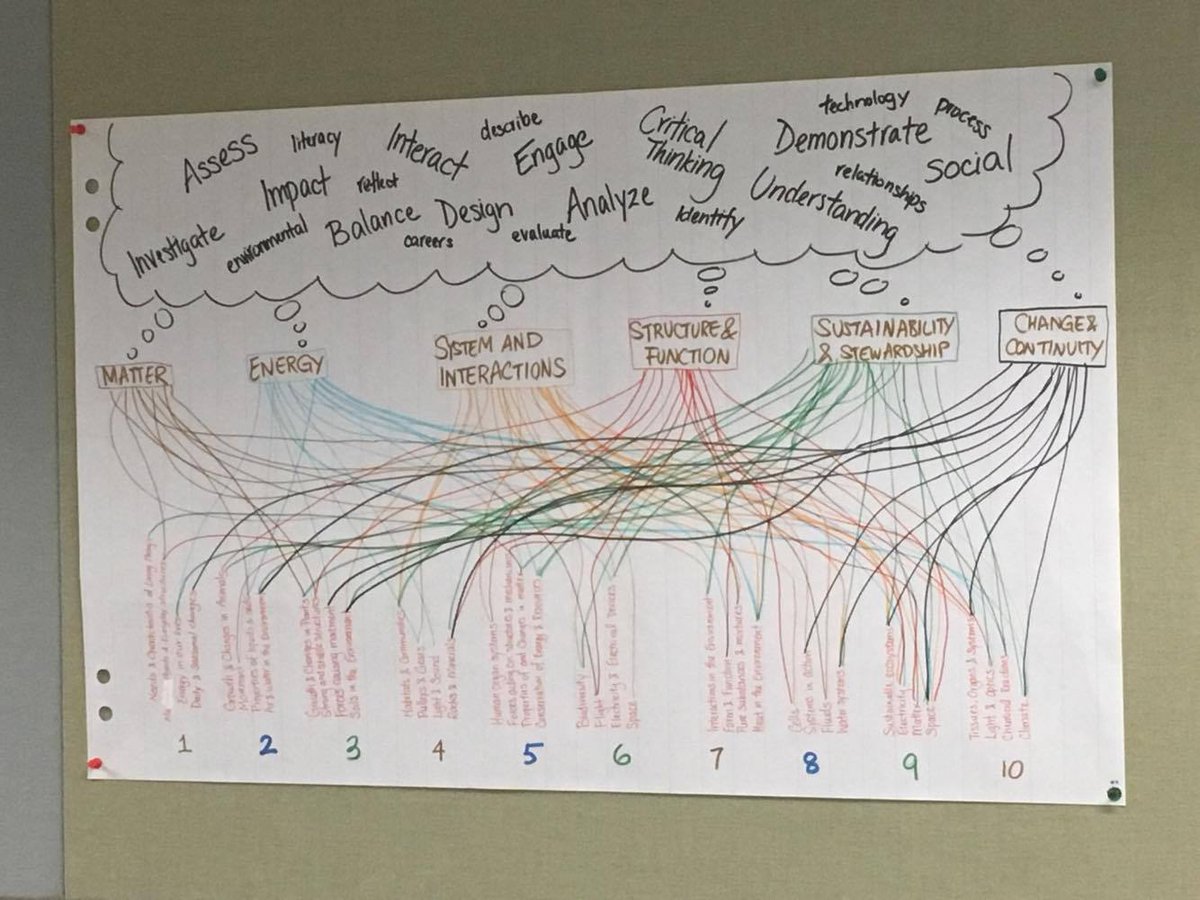 Assess
literacy
Interact
describe
Engage
Critical
Thinking
technology
process
Demonstrate
Social
Impact
reflect
relationships
Understanding
Investigate
environmental
Balance
careers
Design
evaluate
Analyze
Identify
MATTER
ENERGY
SYSTEM AND
INTERACTIONS
STRUCTURE &
FUNCTION
SUSTAINABILITY
& STEWARDSHIP
CHANGE &
CONTINUITY
Needs & Characteristics of Living Things
Energy in our lives
Daily & Seasonal changes
Growth & Changes in Animals
Movement
Properties of liquids & solids
Air & water in the Environment
Growth & Changes in Plants
Strong and stable structures
Forces causing movement
Soils in the Environment
Habitats & Communities
Pulleys & Gears
Light & Sound
Rocks & Minerals
Human organ systems
Forces acting on structures & mechanisms
Properties of and Changes in matter
Conservation of Energy & Resources
Biodiversity
Flight
Electricity & Electrical Devices
Space
Interactions in the Environment
Form & Function
Pure Substances & mixtures
Heat in the Environment
Cells
Systems in action
Fluids
Water systems
Sustainable ecosystems
Electricity
Matter
Space
Tissues, Organs & Systems
Light & Optics
Chemical Reactions
Climate
1
2
3
4
5
6
7
8
9
10